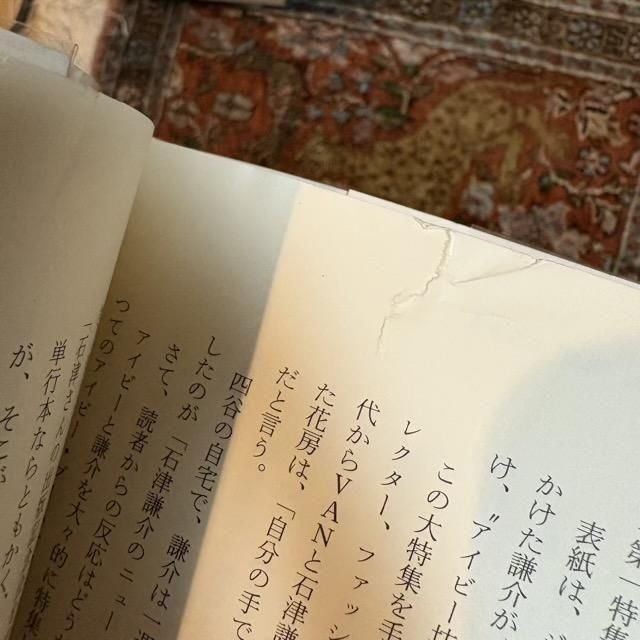 第一特集
表紙は、
かけた謙介が
け、〝アイビー
この大特集を手
レクター、ファッシ
代からVANと石津謙
た花房は、「自分の手で
だと言う。
四谷の自宅で、謙介は一
したのが「石津謙介のニュー
さて、読者からの反応はどう
アイビーと謙介を大々的に特集
つてのアイビー・
「石津さんの
単行本ならともかく、
が、そこが